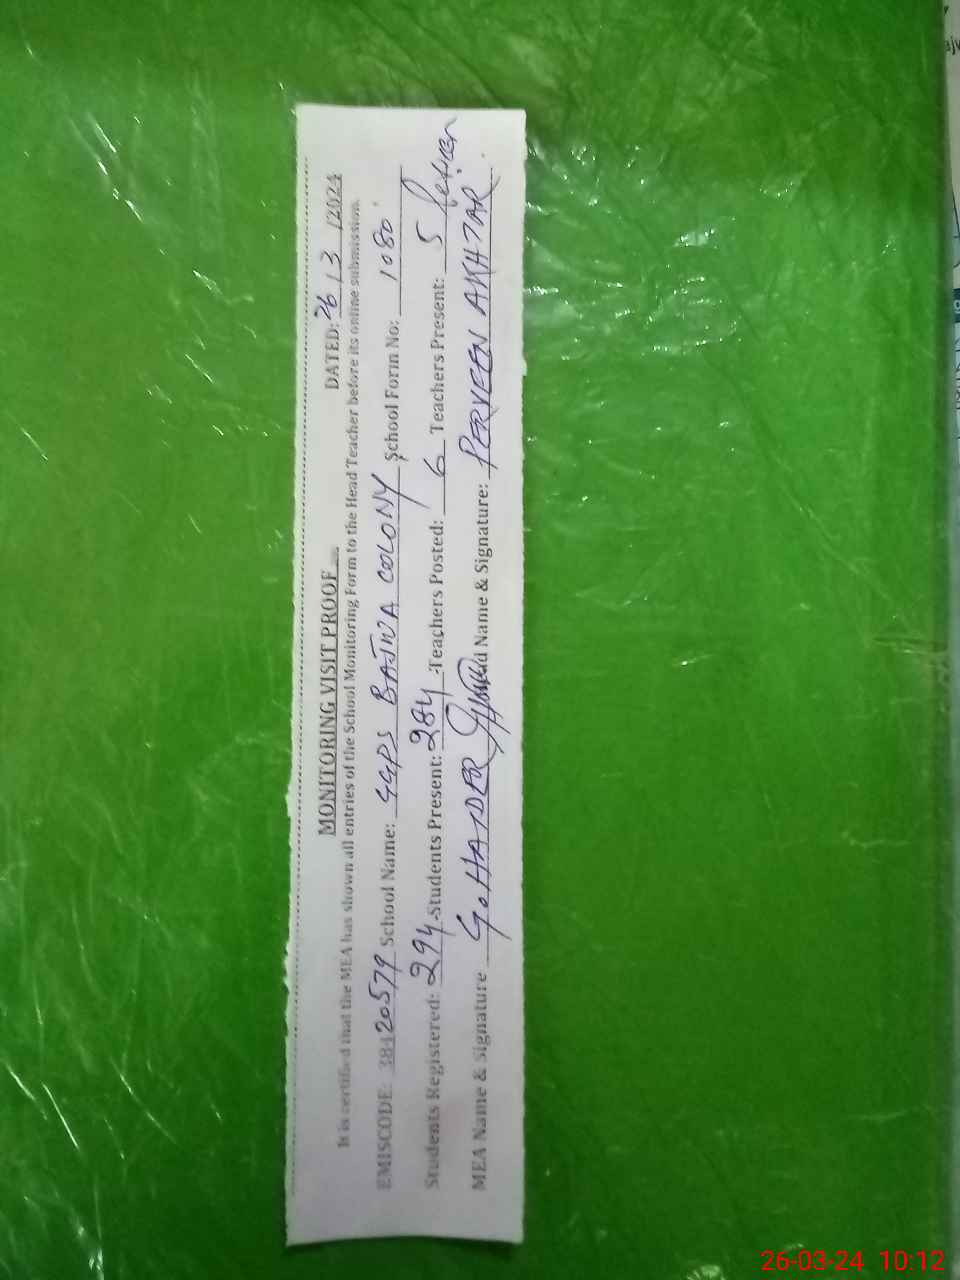 MONITORING VISIT PROOF
DATED: 26/3/2024
It is certified that the MEA has shown all entries of the School Monitoring Form to the Head Teacher before its online submission.
EMISCODE: 38420579 School Name: GGPS BAJWA COLONY School Form No: 1080
Students Registered: 294 Students Present: 284 Teachers Posted: 6 Teachers Present: 5
MEA Name & Signature G. HAIDER Head Name & Signature: PERVEEN AKHTAR
26-03-24 10:12